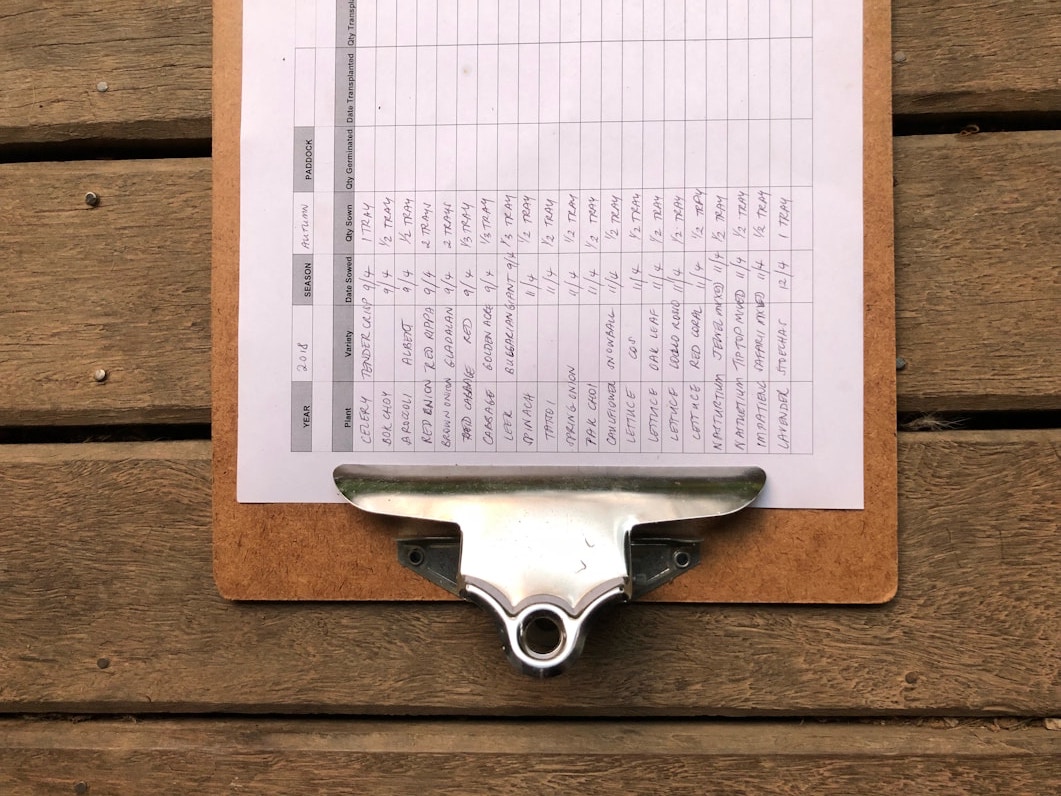 YEAR 2018 SEASON AUTUMN PADDOCK
Plant Variety Date Sowed Qty Sown Qty Germinated Date Transplanted Qty Transpla
CELERY TENDERCRISP 9/4 1 TRAY
BOK CHOY 9/4 1/2 TRAY
BROCCOLI ALBERT 9/4 1/2 TRAY
RED ONION RED RIPPA 9/4 2 TRAYS
BROWN ONION GLADALAN 9/4 2 TRAYS
RED CABBAGE RED 9/4 1/3 TRAY
CABBAGE GOLDEN ACRE 9/4 1/3 TRAY
LEEK BULGARIAN GIANT 9/4 1/3 TRAY
SPINACH 11/4 1/2 TRAY
TATSOI 11/4 1/2 TRAY
SPRING ONION 11/4 1/2 TRAY
PAK CHOI 11/4 1/2 TRAY
CAULIFLOWER SNOWBALL 11/4 1/2 TRAY
LETTUCE COS 11/4 1/2 TRAY
LETTUCE OAK LEAF 11/4 1/2 TRAY
LETTUCE LOLLO ROSSO 11/4 1/2 TRAY
LETTUCE RED CORAL 11/4 1/2 TRAY
NASTURTIUM JEWEL MIXED 11/4 1/2 TRAY
NASTURTIUM TIP TOP MIXED 11/4 1/2 TRAY
IMPATIENS SAFARI MIXED 11/4 1/2 TRAY
LAVENDER STOECHAS 12/4 1 TRAY